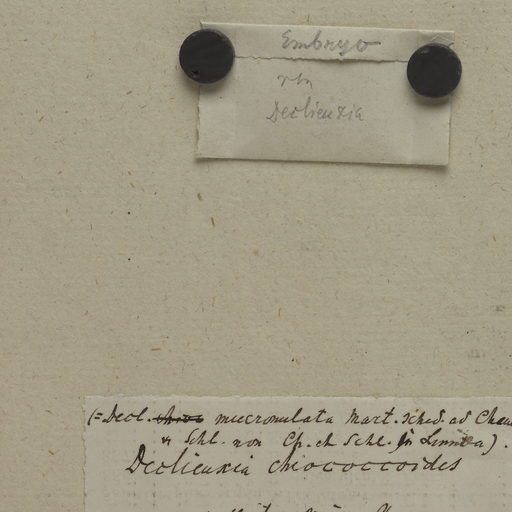 Embryo
von
Declieuxia
(= Decl. chioc mucronulata Mart. sched. ad Cham
& Schl. non Ch. et Schl. in Linnæa).
Declieuxia chiococcoides